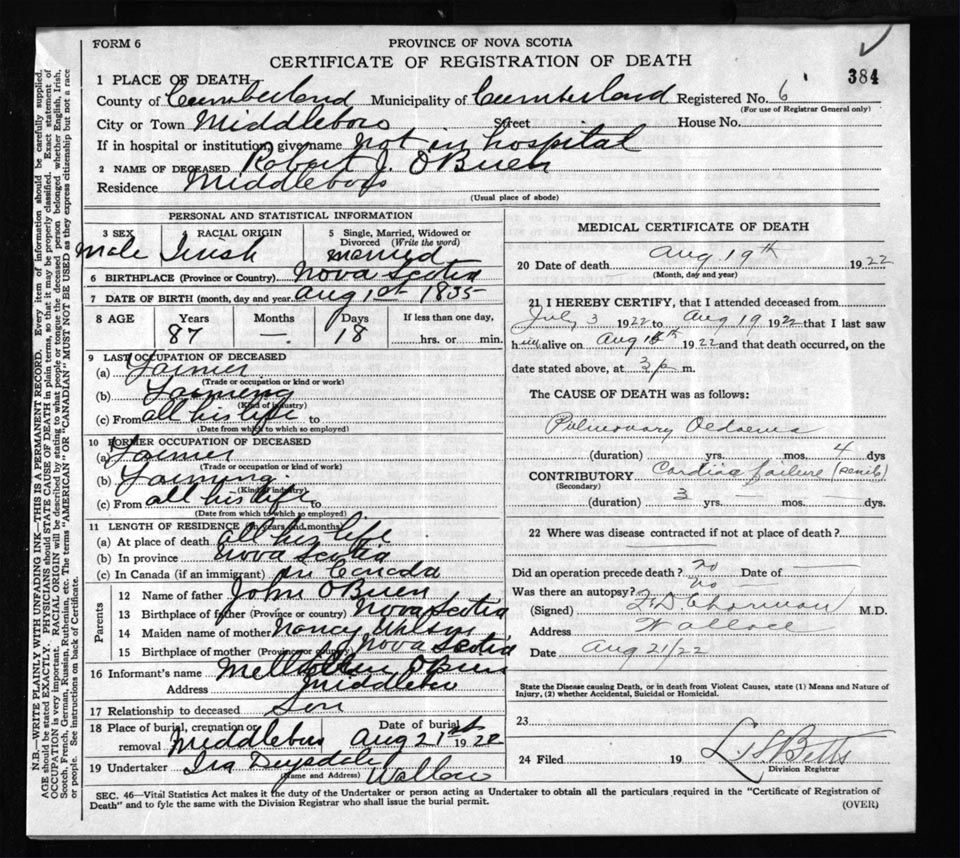 FORM 6
PROVINCE OF NOVA SCOTIA
CERTIFICATE OF REGISTRATION OF DEATH
384
1 PLACE OF DEATH
County of Cumberland Municipality of Cumberland Registered No. 6
(For use of Registrar General only)
City or Town Middleboro Street House No.
If in hospital or institution, give name not in hospital
2 NAME OF DECEASED Robert J. OBrien
Residence Middleboro
(Usual place of abode)
PERSONAL AND STATISTICAL INFORMATION
3 SEX RACIAL ORIGIN 5 Single, Married, Widowed or Divorced (Write the word)
Male Irish married
6 BIRTHPLACE (Province or Country) Nova Scotia
7 DATE OF BIRTH (month, day and year) Aug 1st 1835
8 AGE Years Months Days If less than one day,
87 — 18 hrs. or min.
9 LAST OCCUPATION OF DECEASED
(a) Farmer
(Trade or occupation or kind or work)
(b) Farming
(Kind of industry)
(c) From all his life to
(Date from which to which so employed)
10 FORMER OCCUPATION OF DECEASED
(a) Farmer
(Trade or occupation or kind of work)
(b) Farming
(Kind of industry)
(c) From all his life to
(Date from which to which so employed)
11 LENGTH OF RESIDENCE (in years and months)
(a) At place of death all his life
(b) In province Nova Scotia
(c) In Canada (if an immigrant) in Canada
Parents
12 Name of father John OBrien
13 Birthplace of father (Province or country) Nova Scotia
14 Maiden name of mother Nancy
15 Birthplace of mother (Province or country) Nova Scotia
16 Informant's name OBrien
Address Middleboro
17 Relationship to deceased Son
18 Place of burial, cremation or removal Middleboro Date of burial Aug 21st 1922
19 Undertaker Ira Drysdale Wallace
(Name and Address)
MEDICAL CERTIFICATE OF DEATH
20 Date of death Aug 19th 1922
(Month, day and year)
21 I HEREBY CERTIFY, that I attended deceased from
July 3 1922 to Aug 19 1922 that I last saw
him alive on Aug 1922 and that death occurred, on the
date stated above, at 3 p m.
The CAUSE OF DEATH was as follows:
Pulmonary Oedaema
(duration) yrs. mos. 4 dys
CONTRIBUTORY Cardiac failure (senile)
(Secondary)
(duration) 3 yrs. — mos. — dys.
22 Where was disease contracted if not at place of death?
Did an operation precede death? no Date of
Was there an autopsy? no
(Signed) M.D.
Address Wallace
Date Aug 21/22
State the Disease causing Death, or in death from Violent Causes, state (1) Means and Nature of
Injury, (2) whether Accidental, Suicidal or Homicidal.
23
24 Filed 19 Betts
Division Registrar
SEC. 46—Vital Statistics Act makes it the duty of the Undertaker or person acting as Undertaker to obtain all the particulars required in the "Certificate of Registration of
Death" and to fyle the same with the Division Registrar who shall issue the burial permit.
(OVER)
N.B.—WRITE PLAINLY WITH UNFADING INK—THIS IS A PERMANENT RECORD. Every item of information should be carefully supplied.
AGE should be stated EXACTLY. PHYSICIANS should STATE CAUSE OF DEATH in plain terms, so that it may be properly classified. Exact statement of
OCCUPATION is very important. RACIAL ORIGIN will be described by stating to what people or tongue the deceased person belonged, whether English, Irish,
Scotch, French, German, Russian, Ruthenian, etc. The terms "AMERICAN" OR "CANADIAN" MUST NOT BE USED as they express citizenship but not a race
or people. See instructions on back of Certificate.